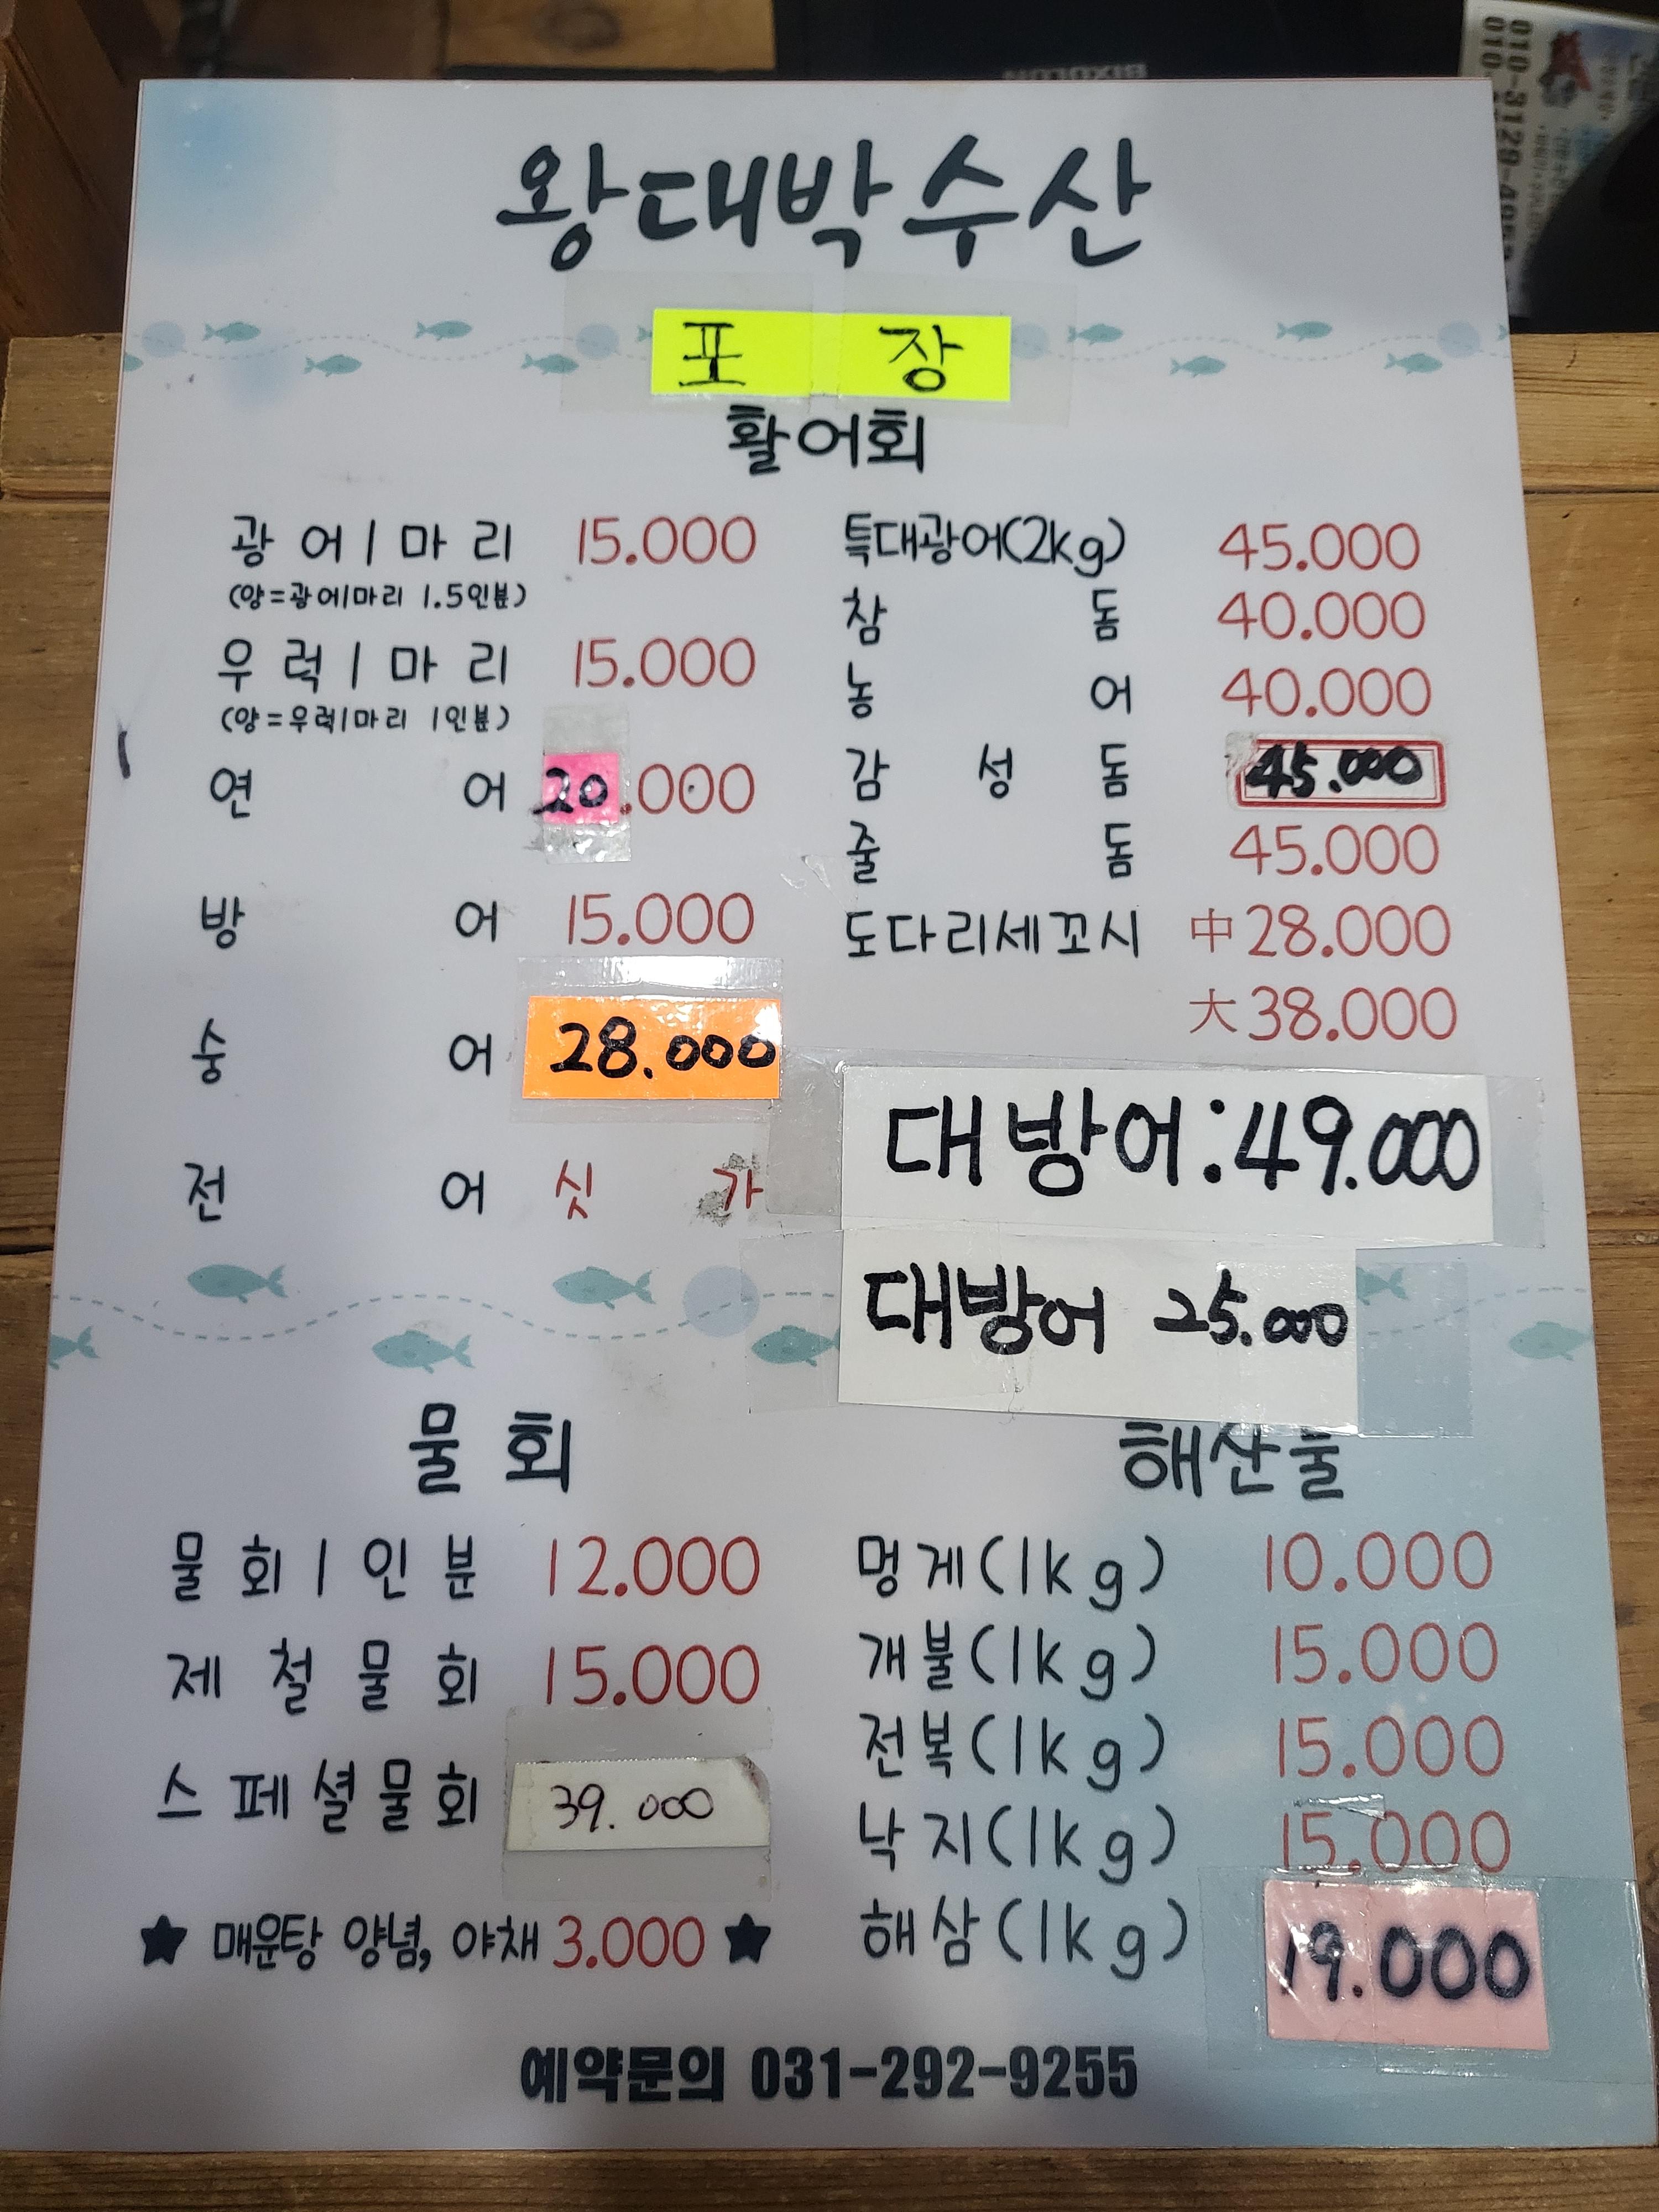 왕대박수산
포 장
활어회
광어1마리 15.000
(양=광어1마리 1.5인분)
우럭1마리 15.000
(양=우럭1마리 1인분)
연어 20.000
방어 15.000
숭어 28.000
전어 싯가
특대광어(2kg) 45.000
참돔 40.000
농어 40.000
감성돔 45.000
줄돔 45.000
도다리세꼬시 中 28.000
大 38.000
대방어:49.000
대방어 25.000
물회
물회1인분 12.000
제철물회 15.000
스페셜물회 39.000
★ 매운탕 양념, 야채 3.000 ★
해산물
멍게(1kg) 10.000
개불(1kg) 15.000
전복(1kg) 15.000
낙지(1kg) 15.000
해삼(1kg) 19.000
예약문의 031-292-9255